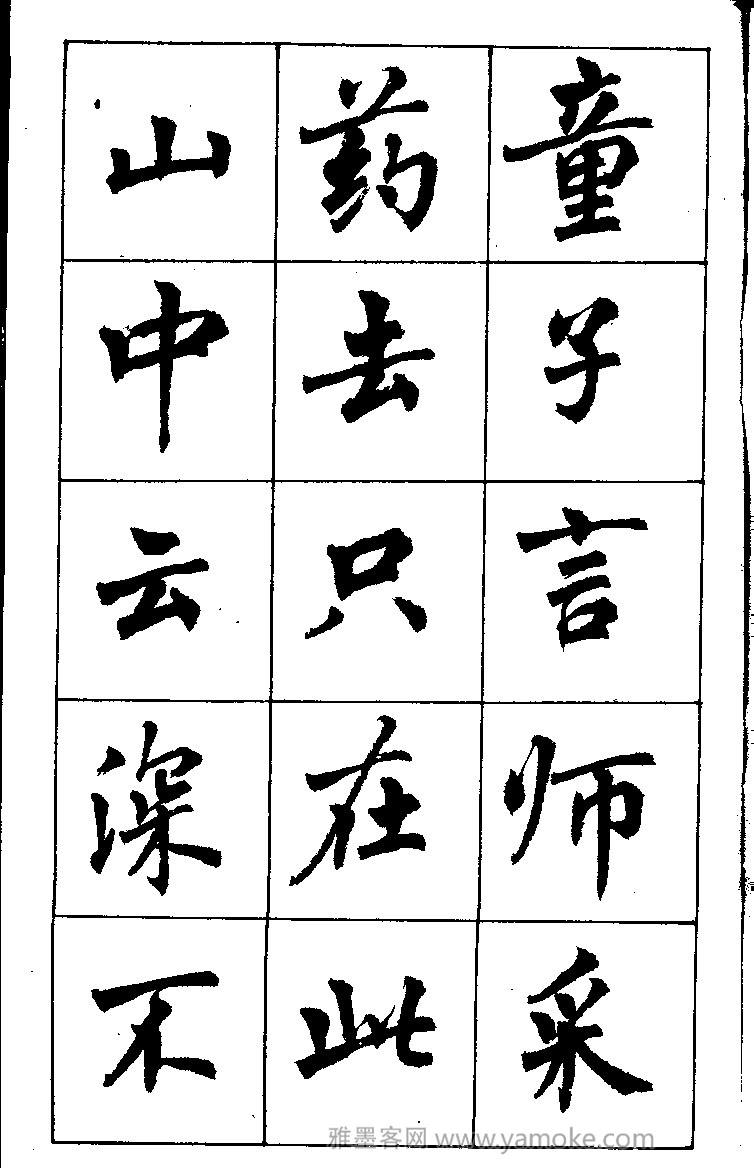 童子言师采
药去只在此
山中云深不
雅墨客网 www.yamoke.com